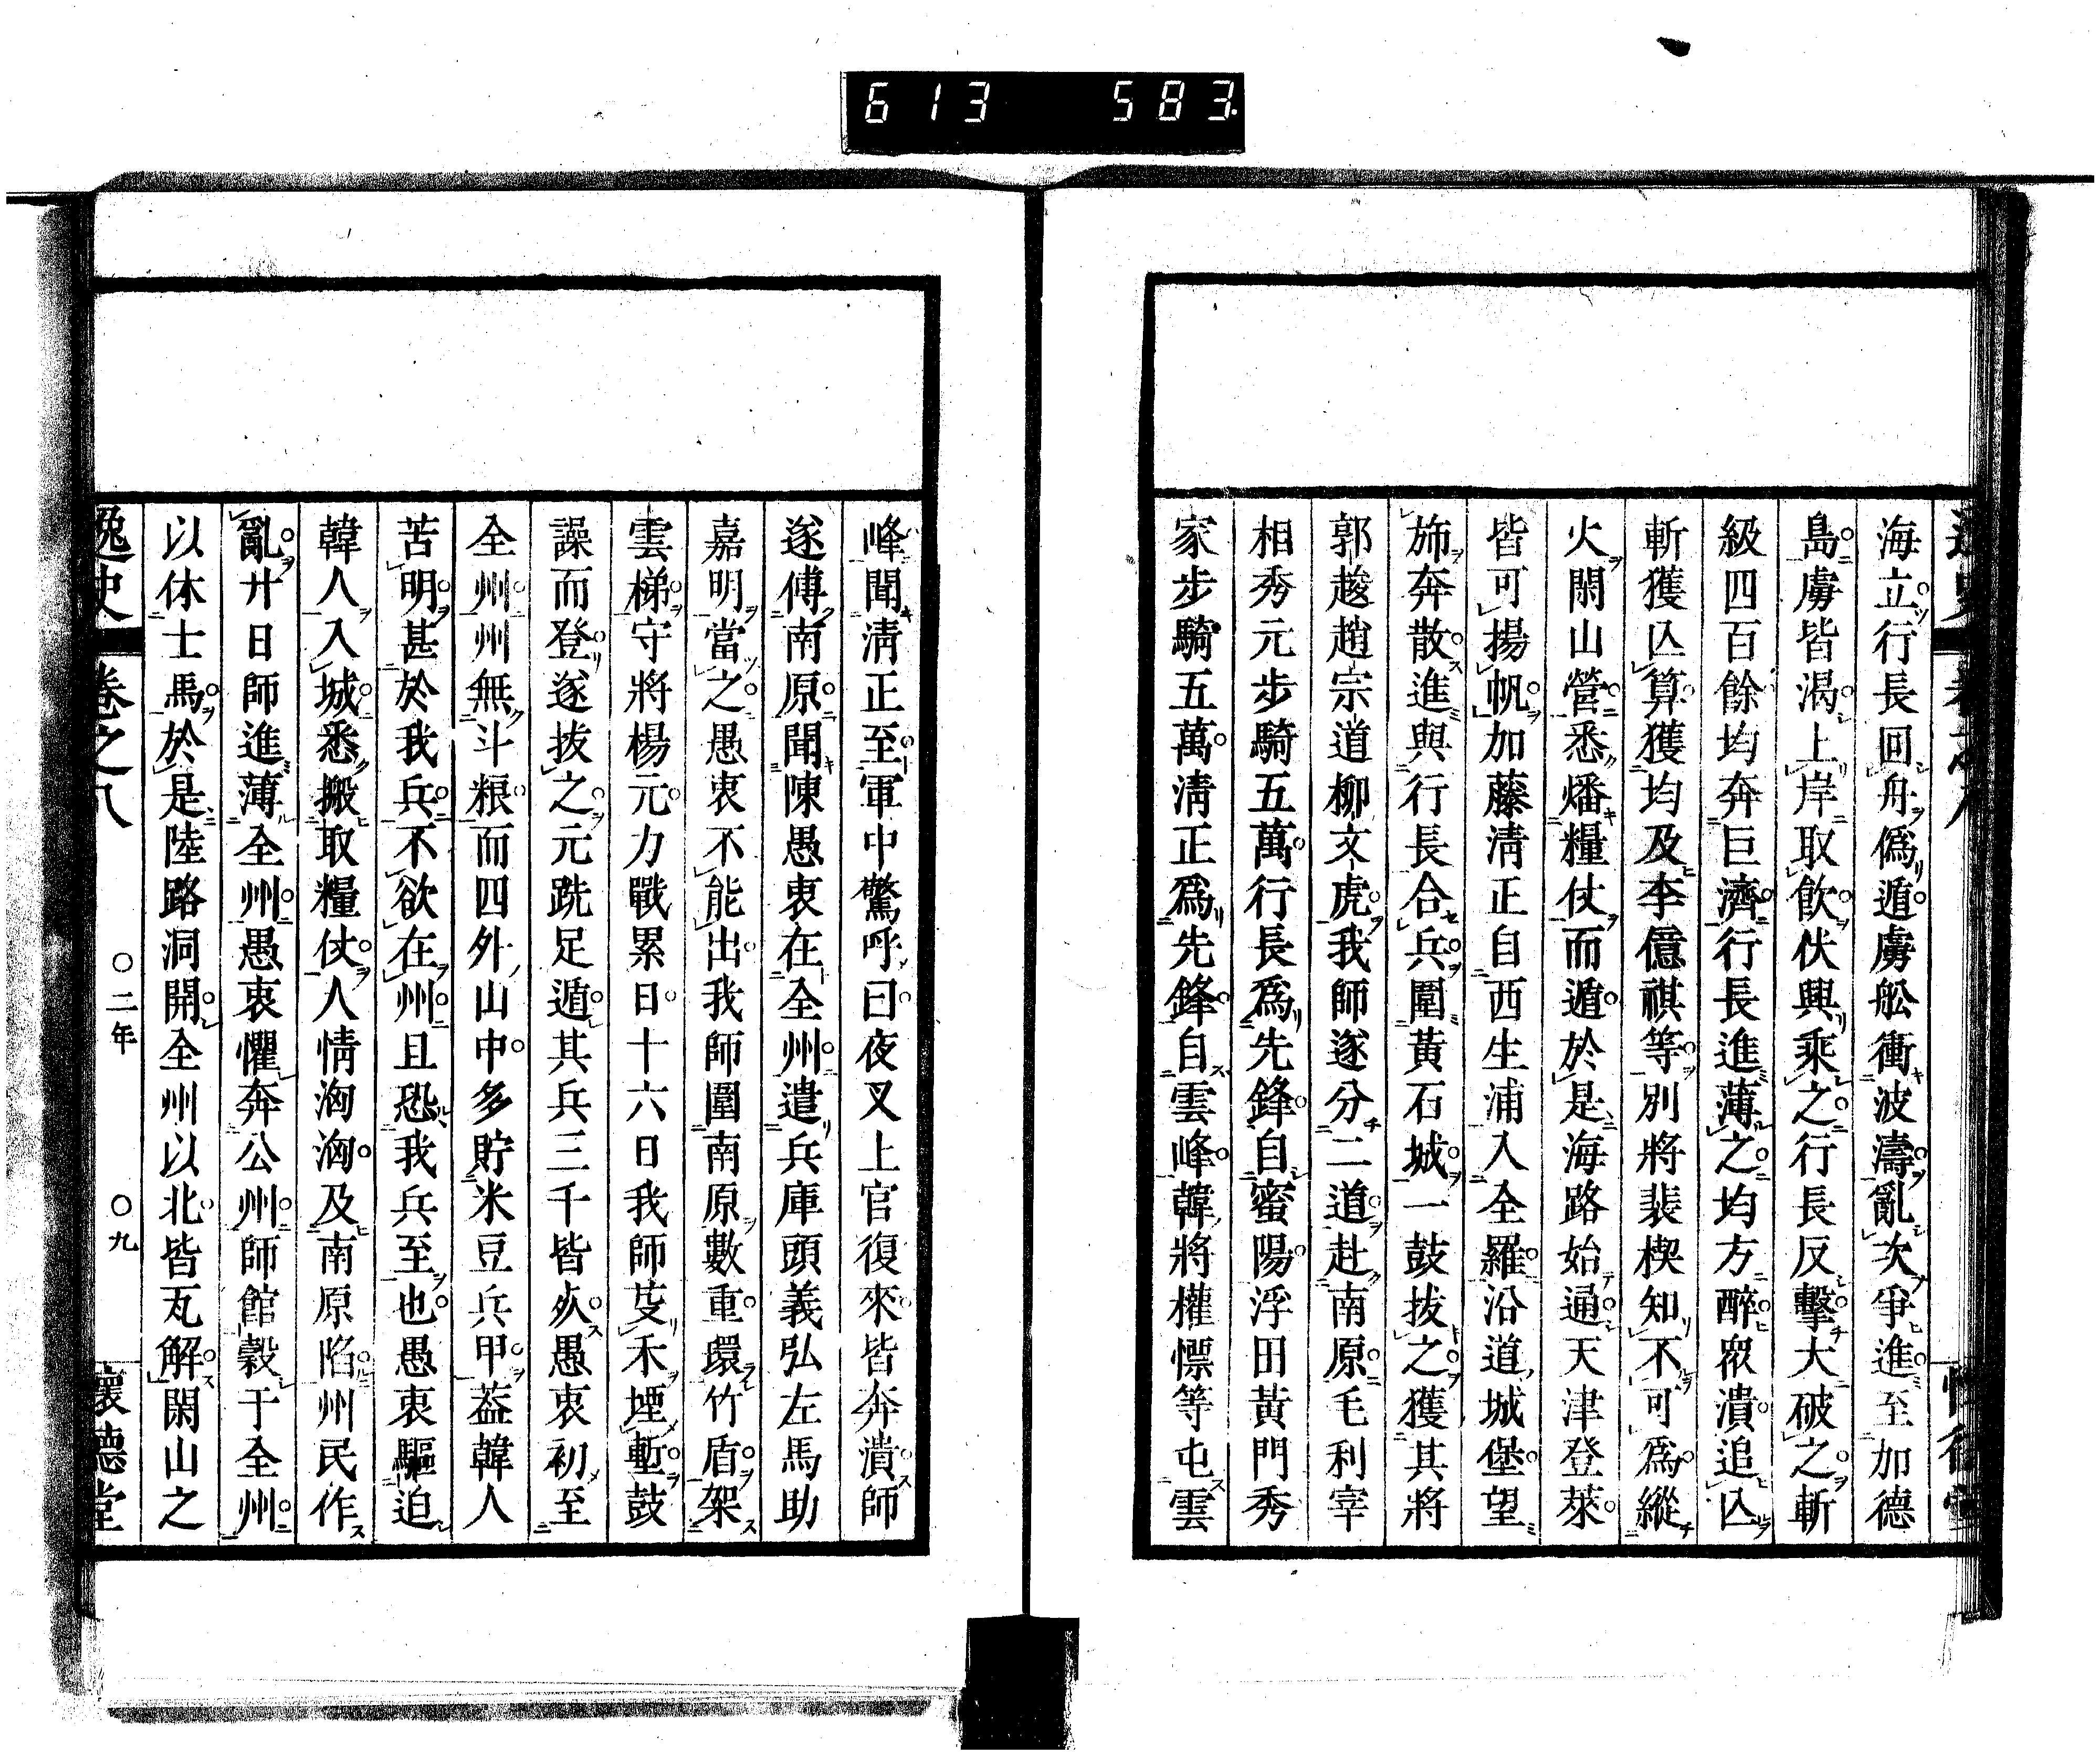 613 583.
海立行長回舟僞遁虜舩衝波濤亂次爭進至加德
島虜皆渴上岸取飮伏興乘之行長反擊大破之斬
級四百餘均奔巨濟行長進薄之均方醉眾潰追亾
斬獲亾算獲均及李億祺等別將裴楔知不可爲縱
火閑山營悉燔糧仗而遁於是海路始通天津登萊
皆可揚帆加藤淸正自西生浦入全羅沿道城堡望
斾奔散進與行長合兵圍黃石城一鼓拔之獲其將
郭䞭趙宗道柳文虎我師遂分二道赴南原毛利宰
相秀元步騎五萬行長爲先鋒自蜜陽浮田黃門秀
家步騎五萬淸正爲先鋒自雲峰韓將權慄等屯雲
峰聞淸正至軍中驚呼曰夜叉上官復來皆奔潰師
遂傅南原聞陳愚衷在全州遣兵庫頭義弘左馬助
嘉明當之愚衷不能出我師圍南原數重環竹盾架
雲梯守將楊元力戰累日十六日我師芟禾堙塹鼓
譟而登遂拔之元跣足遁其兵三千皆㱙愚衷初至
全州州無斗粮而四外山中多貯米豆兵甲葢韓人
苦明甚於我兵不欲在州且恐我兵至也愚衷驅迫
韓人入城悉搬取糧仗人情洶洶及南原陷州民作
亂廿日師進薄全州愚衷懼奔公州師館穀于全州
以休士馬於是陸路洞開全州以北皆瓦解閑山之
逸史 卷之八 〇二年 〇九 懷德堂